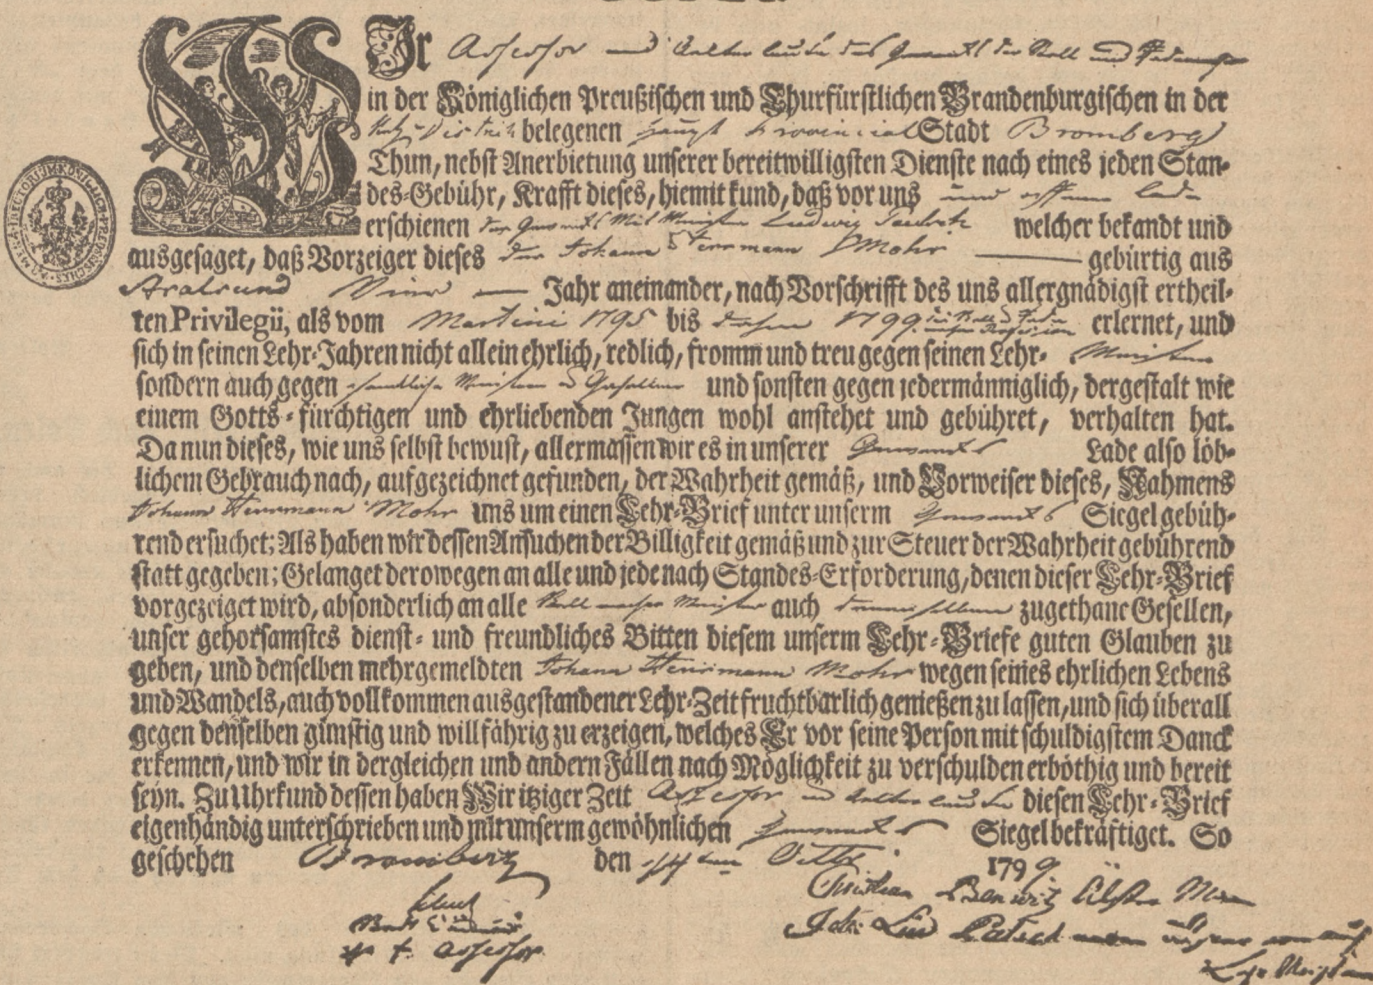 WIr Assessor und Aelter Leute des Gewercks der Stell und
in der Königlichen Preußischen und Churfürstlichen Brandenburgischen in der
Netz-District belegenen Haupt Provincial Stadt Bromberg
Thun, nebst Anerbietung unserer bereitwilligsten Dienste nach eines jeden Stan-
des-Gebühr, Krafft dieses, hiemit kund, daß vor uns und offener Lade
erschienen der Gewercks Mit Meister Ludwig welcher bekandt und
ausgesaget, daß Vorzeiger dieses der Johann Herrmann Mohr gebürtig aus
Vier Jahr aneinander, nach Vorschrifft des uns allergnädigst ertheil-
ten Privilegii, als vom Martini 1795 bis dahin 1799 erlernet, und
sich in seinen Lehr-Jahren nicht allein ehrlich, redlich, fromm und treu gegen seinen Lehr- Meister
sondern auch gegen sämtliche Meister u Gesellen und sonsten gegen jedermänniglich, dergestalt wie
einem Gotts-fürchtigen und ehrliebenden Jungen wohl anstehet und gebühret, verhalten hat.
Da nun dieses, wie uns selbst bewust, allermassen wir es in unserer Gewercks Lade also löb-
lichem Gebrauch nach, aufgezeichnet gefunden, der Wahrheit gemäß, und Vorweiser dieses, Nahmens
Johann Herrmann Mohr uns um einen Lehr-Brief unter unserm Gewercks Siegel gebüh-
rend ersuchet; Als haben wir dessen Ansuchen der Billigkeit gemäß und zur Steuer der Wahrheit gebührend
statt gegeben; Gelanget derowegen an alle und jede nach Standes-Erforderung, denen dieser Lehr-Brief
vorgezeiget wird, absonderlich an alle Stell macher Meister auch denenselben zugethane Gesellen,
unser gehorsamstes dienst- und freundliches Bitten diesem unserm Lehr-Briefe guten Glauben zu
geben, und denselben mehrgemeldten Johann Herrmann Mohr wegen seines ehrlichen Lebens
und Wandels, auch vollkommen ausgestandener Lehr-Zeit fruchtbarlich genießen zu lassen, und sich überall
gegen denselben günstig und willfährig zu erzeigen, welches Er vor seine Person mit schuldigstem Danck
erkennen, und wir in dergleichen und andern Fällen nach Möglichkeit zu verschulden erböthig und bereit
seyn. Zu Uhrkund dessen haben Wir itziger Zeit Assessor und Aelter Leute diesen Lehr-Brief
eigenhändig unterschrieben und mit unserm gewöhnlichen Gewercks Siegel bekräftiget. So
geschehen Bromberg den 1799
Christian
Assessor